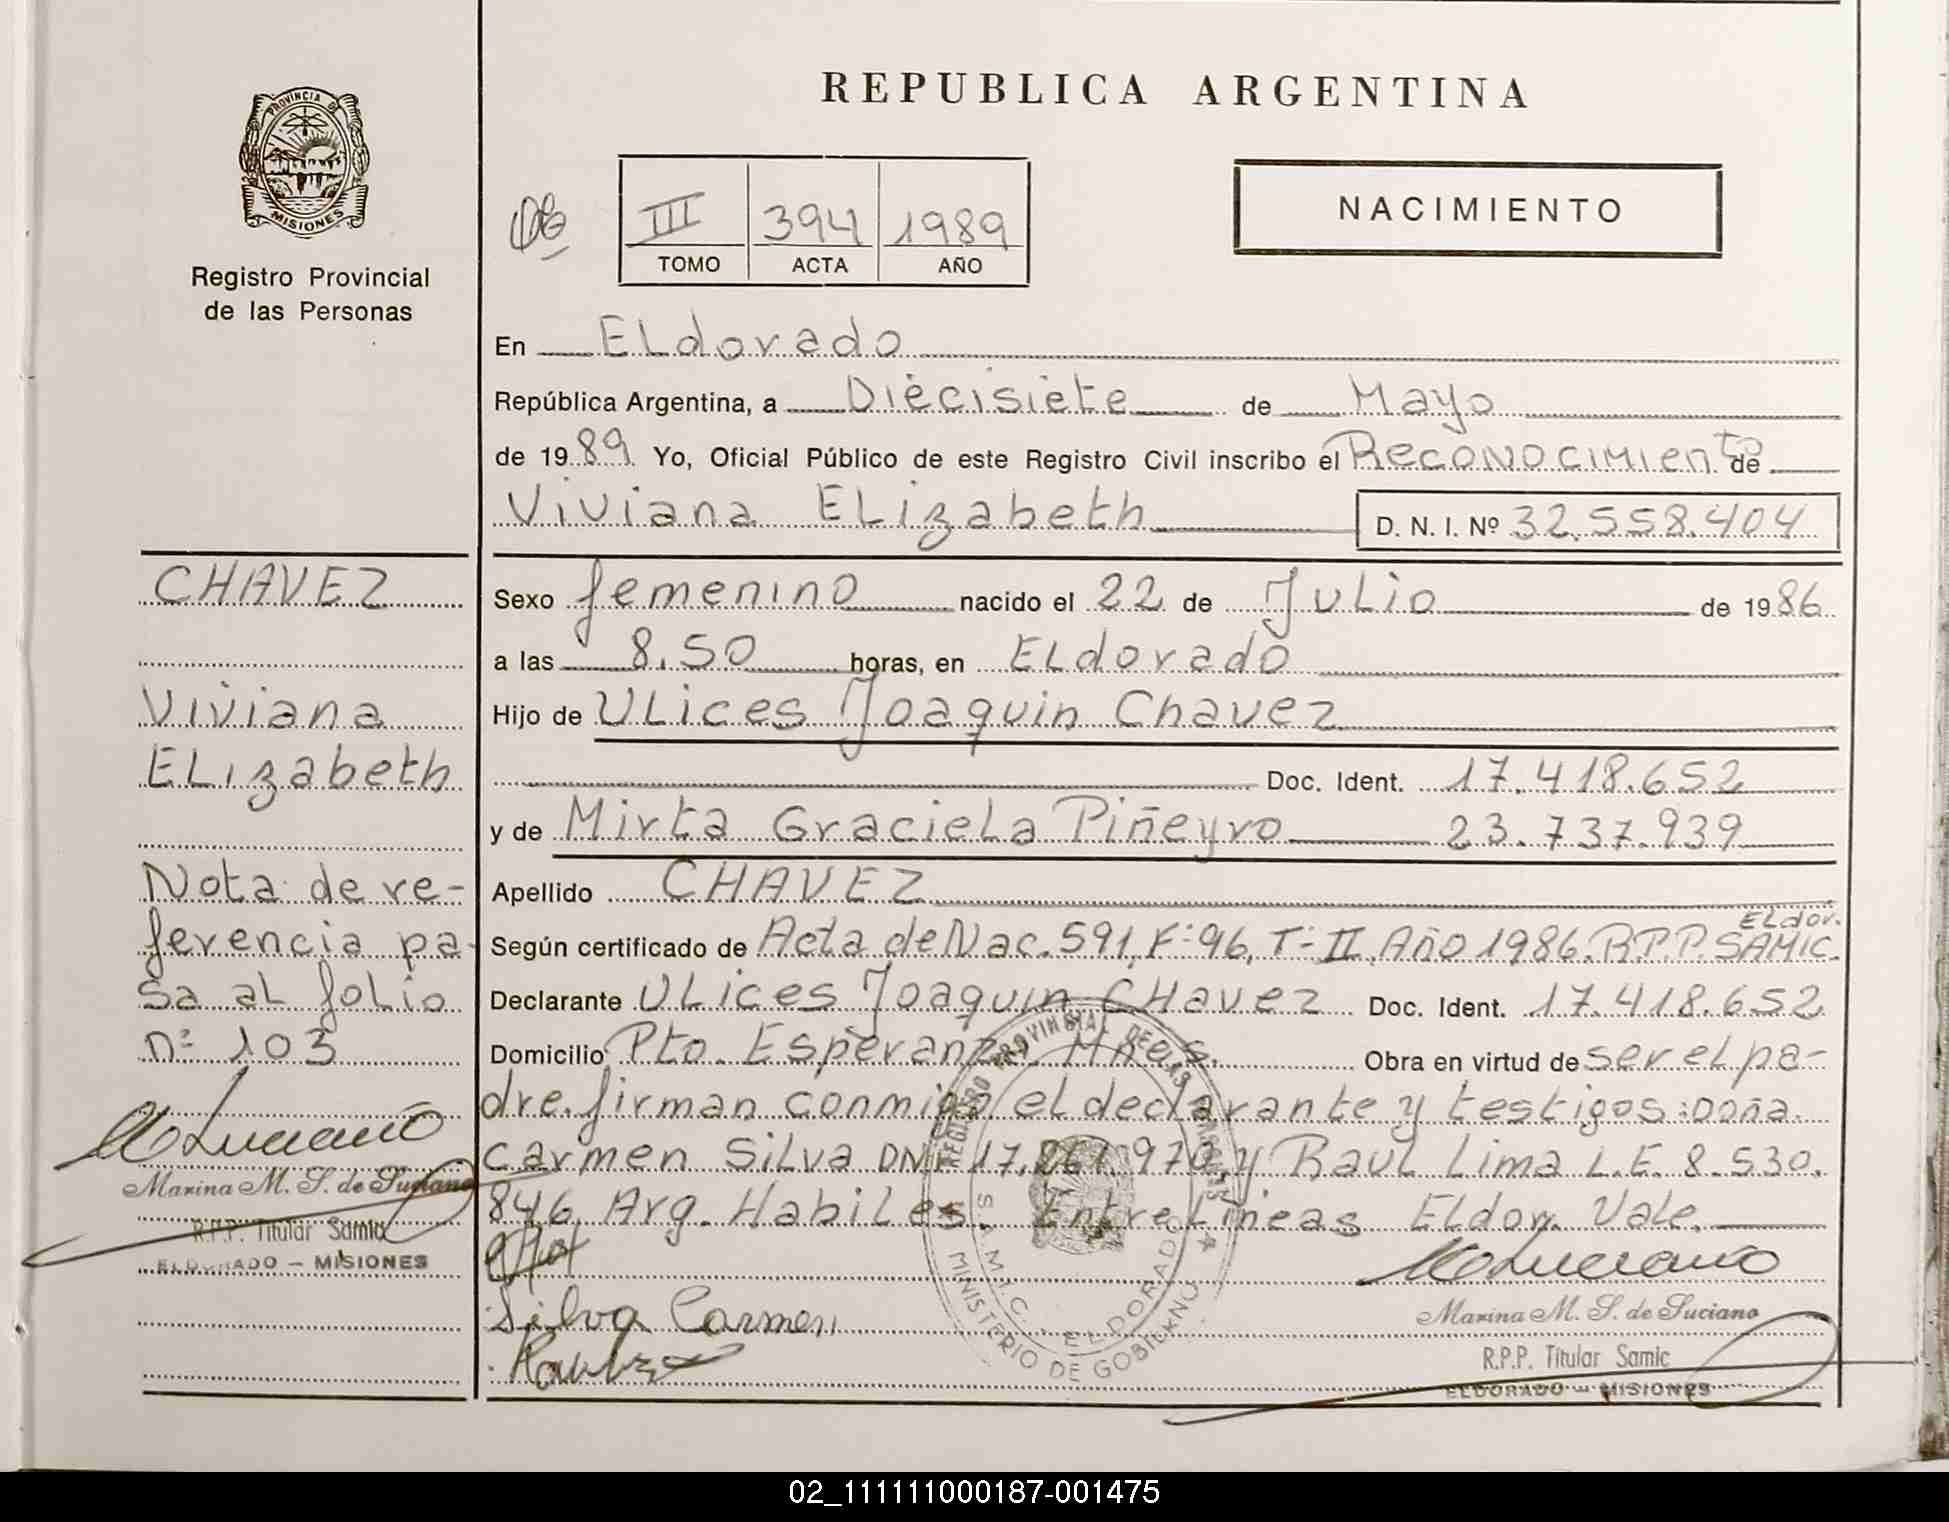 REPUBLICA ARGENTINA
PROVINCIA DE
MISIONES
Registro Provincial
de las Personas
III 394 1989
TOMO ACTA AÑO
NACIMIENTO
En Eldorado
República Argentina, a Diecisiete de Mayo
de 1989 Yo, Oficial Público de este Registro Civil inscribo el Reconocimiento de
Viviana Elizabeth D. N. I. Nº 32.558.404
Sexo femenino nacido el 22 de Julio de 1986
a las 8.50 horas, en Eldorado
Hijo de Ulices Joaquin Chavez
Doc. Ident. 17.418.652
y de Mirta Graciela Piñeyro 23.737.939
Apellido CHAVEZ
Eldor.
Según certificado de Acta de Nac. 591, F: 96, T: II, Año 1986. R.P.P. SAMIC.
Declarante Ulices Joaquin CHavez Doc. Ident. 17.418.652
Domicilio Pto. Esperanza Mnes. Obra en virtud de ser el pa-
dre. firman conmigo el declarante y testigos: Doña
Carmen Silva DNI 17. 970 y Raul Lima L.E. 8.530.
846, Arg. Habiles. Entre Lineas Eldor. Vale.
Silva Carmen
Marina M. S. de Luciano
R.P.P. Titular Samic
ELDORADO — MISIONES
REGISTRO PROVINCIAL DE LAS PERSONAS
S.A.M.I.C. ELDORADO
MINISTERIO DE GOBIERNO
CHAVEZ
Viviana
Elizabeth
Nota de re-
ferencia pa-
sa al folio
nº 103
Marina M. S. de Luciano
R.P.P. Titular Samic
ELDORADO — MISIONES
02_111111000187-001475